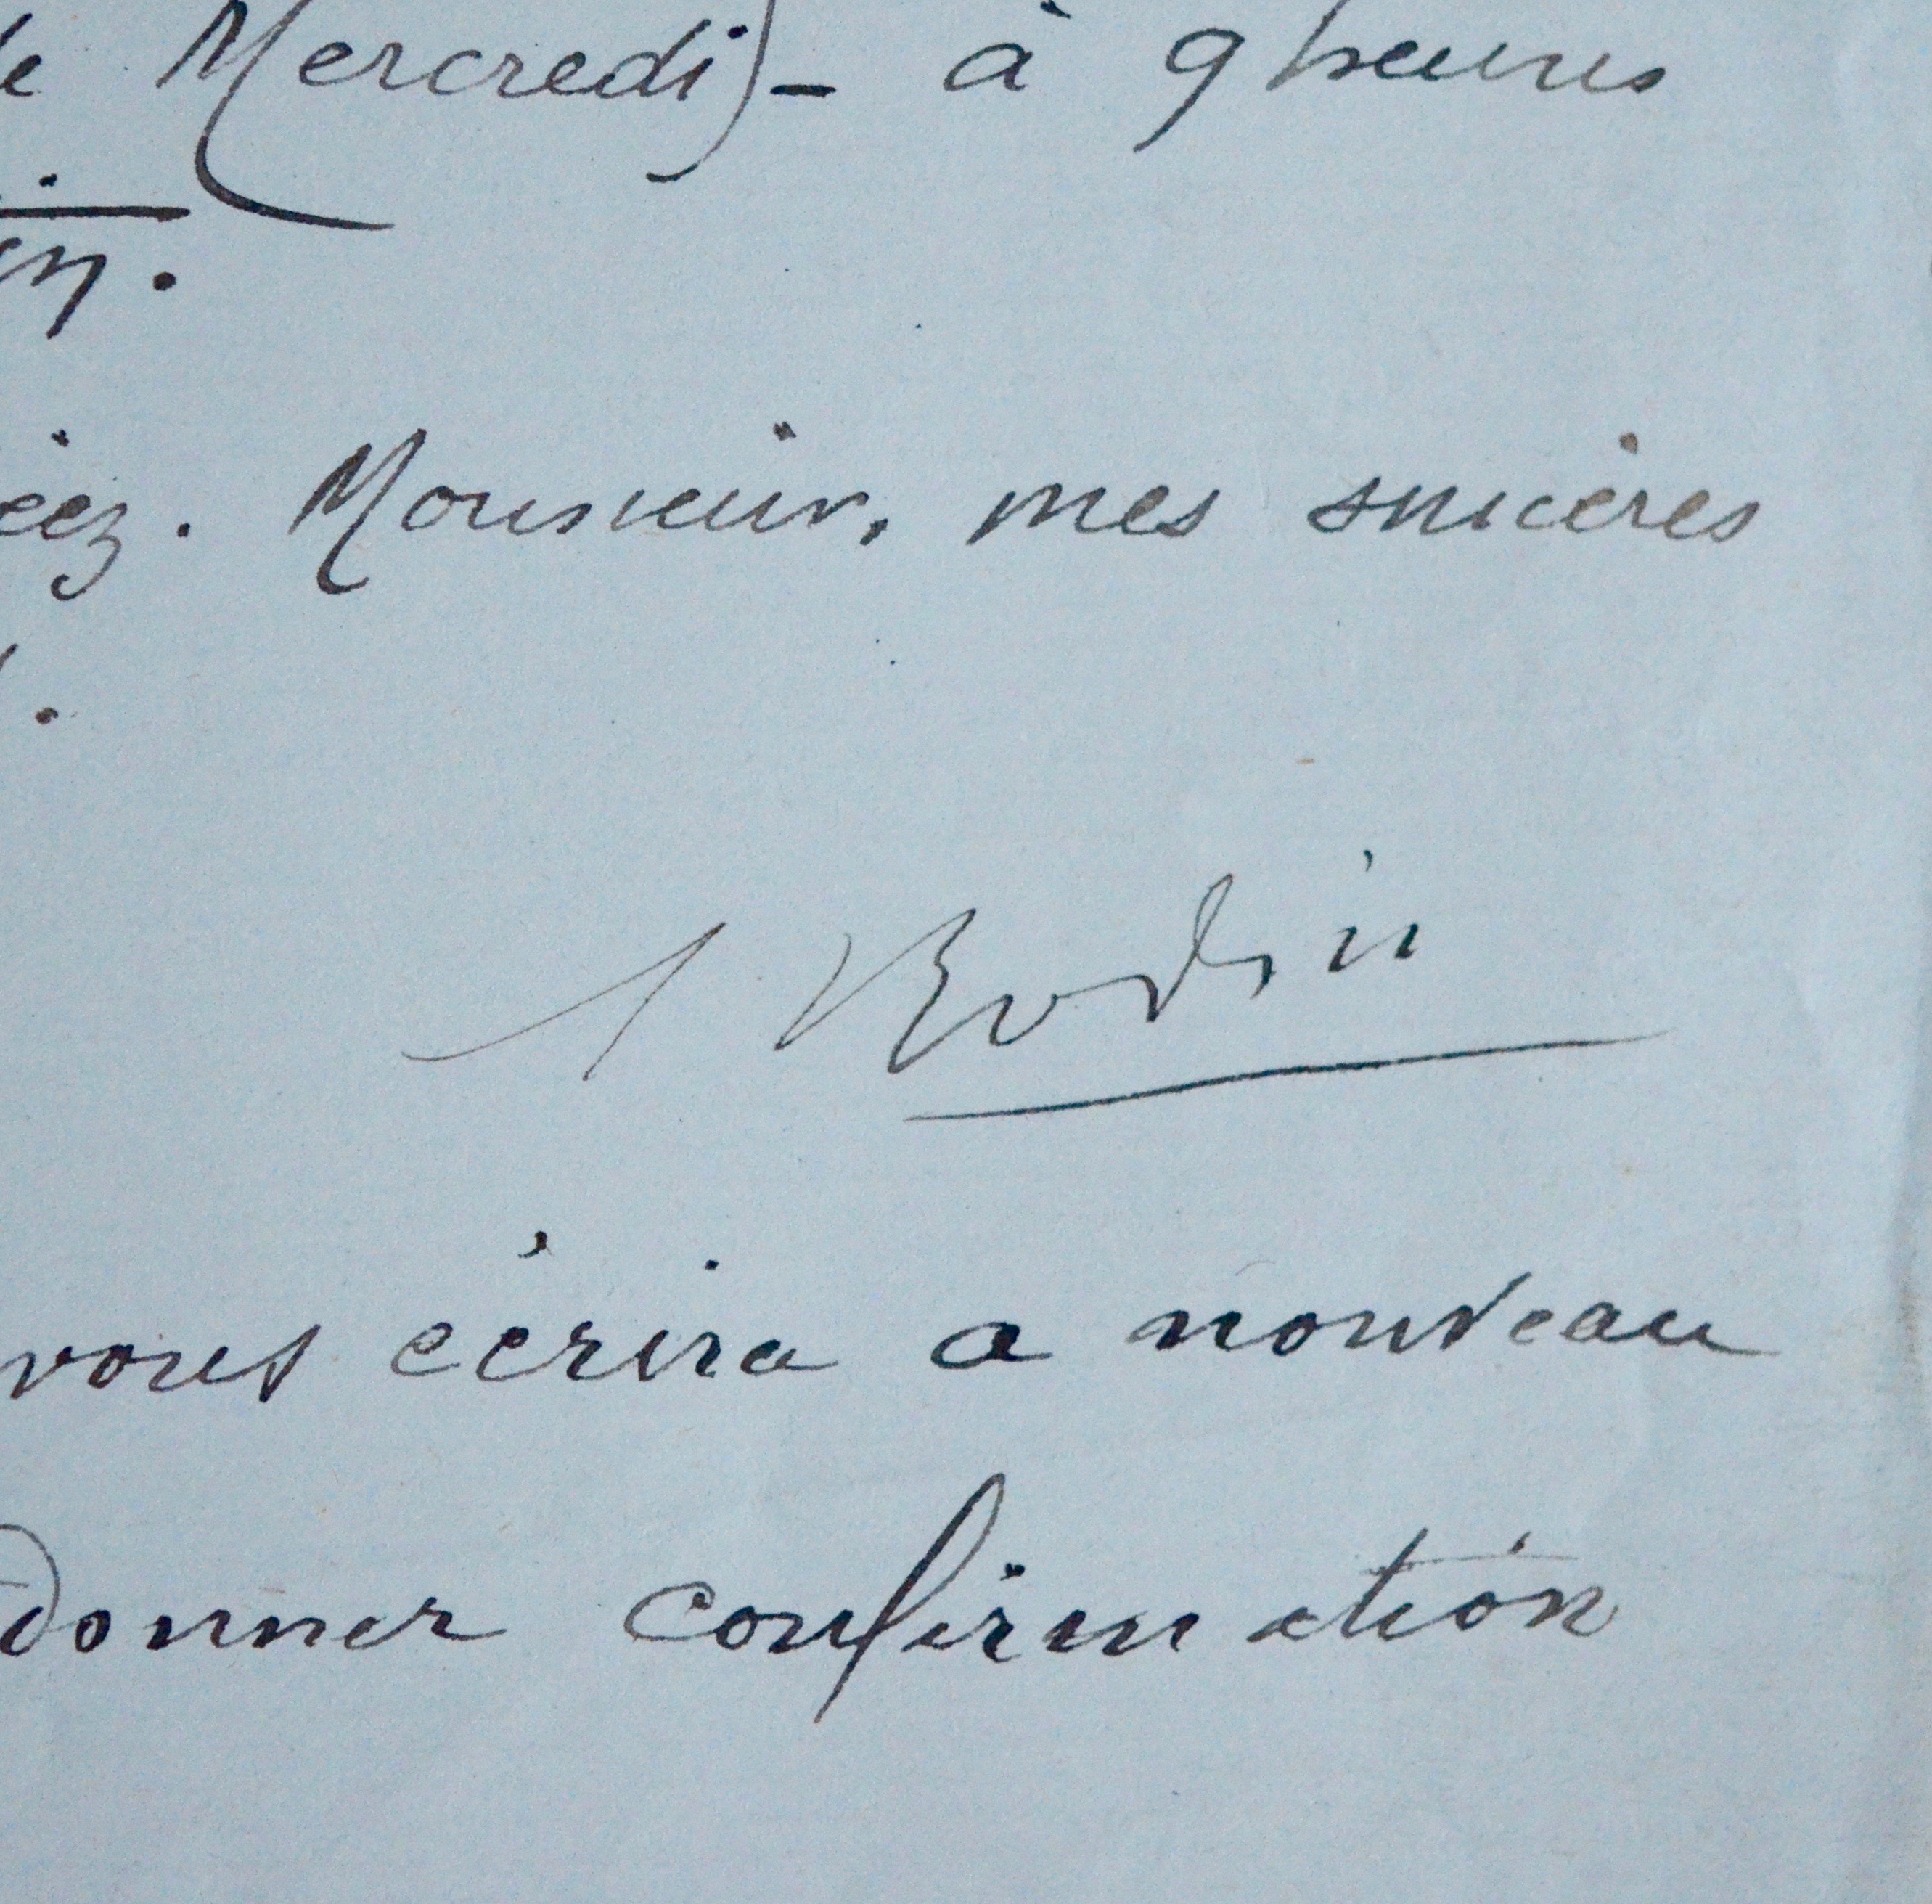 le Mercredi) - à 9 heures
éez. Monsieur, mes sincères
A Rodin
vous écrira a nouveau
donner confirmation